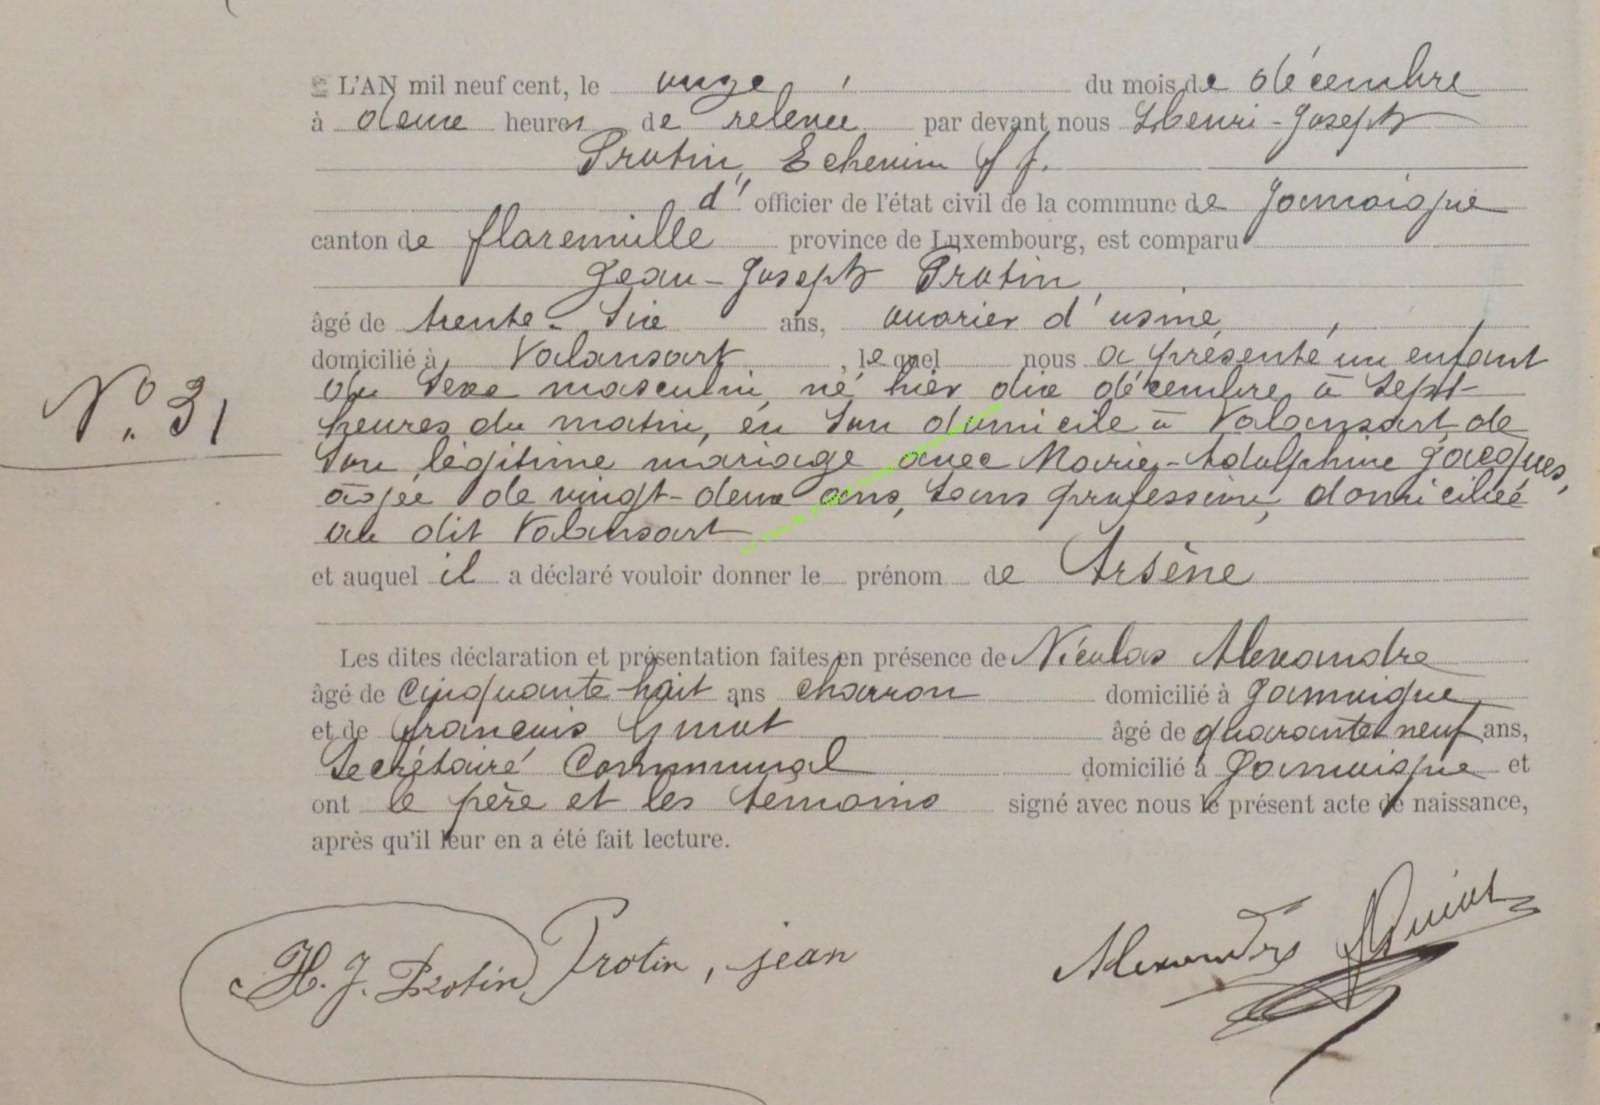 L'AN mil neuf cent, le onze du mois de décembre
à deux heures de relevée par devant nous Henri-Joseph
Protin, Echevin ff.
d' officier de l'état civil de la commune de Jamoigne
canton de florenville province de Luxembourg, est comparu
Jean-Joseph Protin,
âgé de trente-six ans, ouvrier d'usine,
domicilié à Valansart, lequel nous a présenté un enfant
du sexe masculin, né hier dix décembre à sept
heures du matin, en son domicile à Valansart de
son légitime mariage avec Marie-Adolphine Jacques,
âgée de vingt-deux ans, sans profession, domiciliée
au dit Valansart
et auquel il a déclaré vouloir donner le prénom de Arsène
Les dites déclaration et présentation faites en présence de Nicolas Alexandre
âgé de cinquante-huit ans charron domicilié à Jamoigne
et de françois âgé de quarante neuf ans,
Secrétaire Communal domicilié à Jamoigne et
ont le père et les témoins signé avec nous le présent acte de naissance,
après qu'il leur en a été fait lecture.
N° 31
H. J. Protin Protin, jean Alexandre